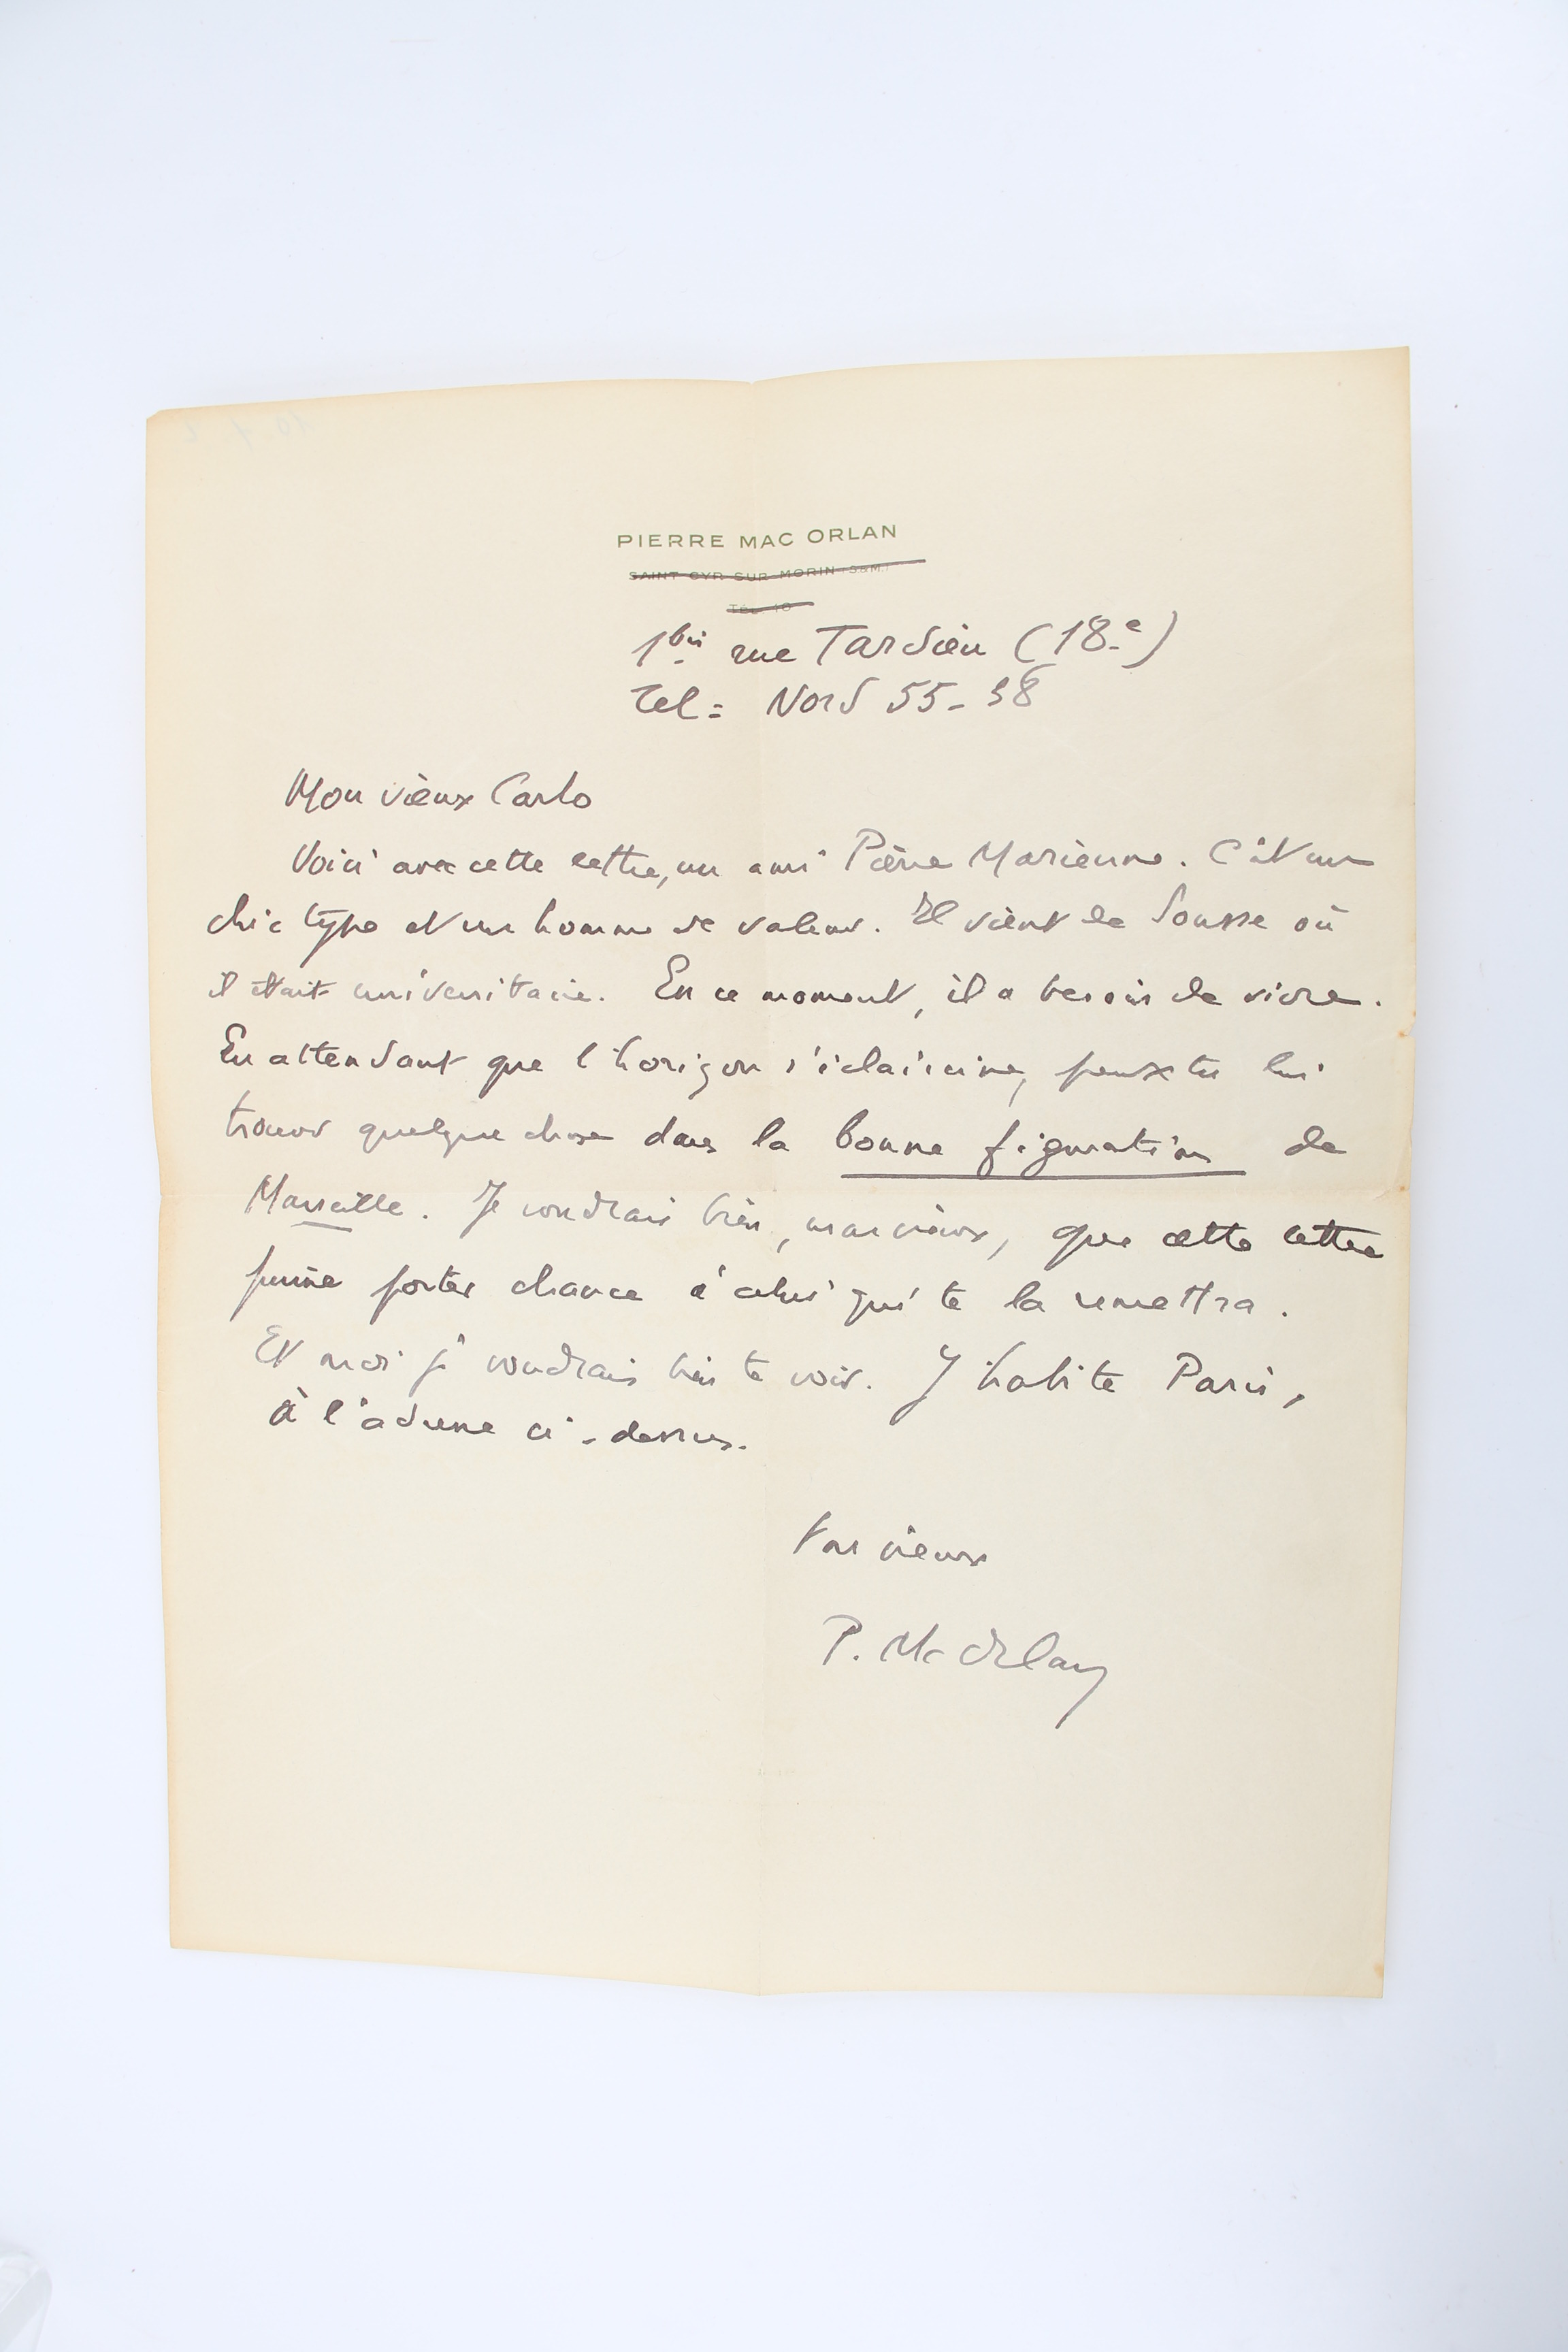 PIERRE MAC ORLAN
SAINT CYR SUR MORIN (S&M.)
TEL 10
1bis rue Tardieu (18e)
Tel = Nord 55-38
Mon vieux Carlo
Voici avec cette lettre, un ami Pierre Marienne. C'est un
chic type et un homme de valeur. Il vient de Sousse où
il était universitaire. En ce moment, il a besoin de vivre.
En attendant que l'horizon s'éclaircisse, peux tu lui
trouver quelque chose dans la bonne figuration de
Marseille. Je voudrais bien, mon vieux, que cette lettre
puisse porter chance à celui qui te la remettra.
Et moi je voudrais bien te voir. J'habite Paris,
à l'adresse ci-dessus.
ton vieux
P. Mac Orlan